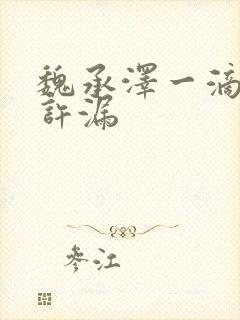 魏承澤一滴
許漏
參江